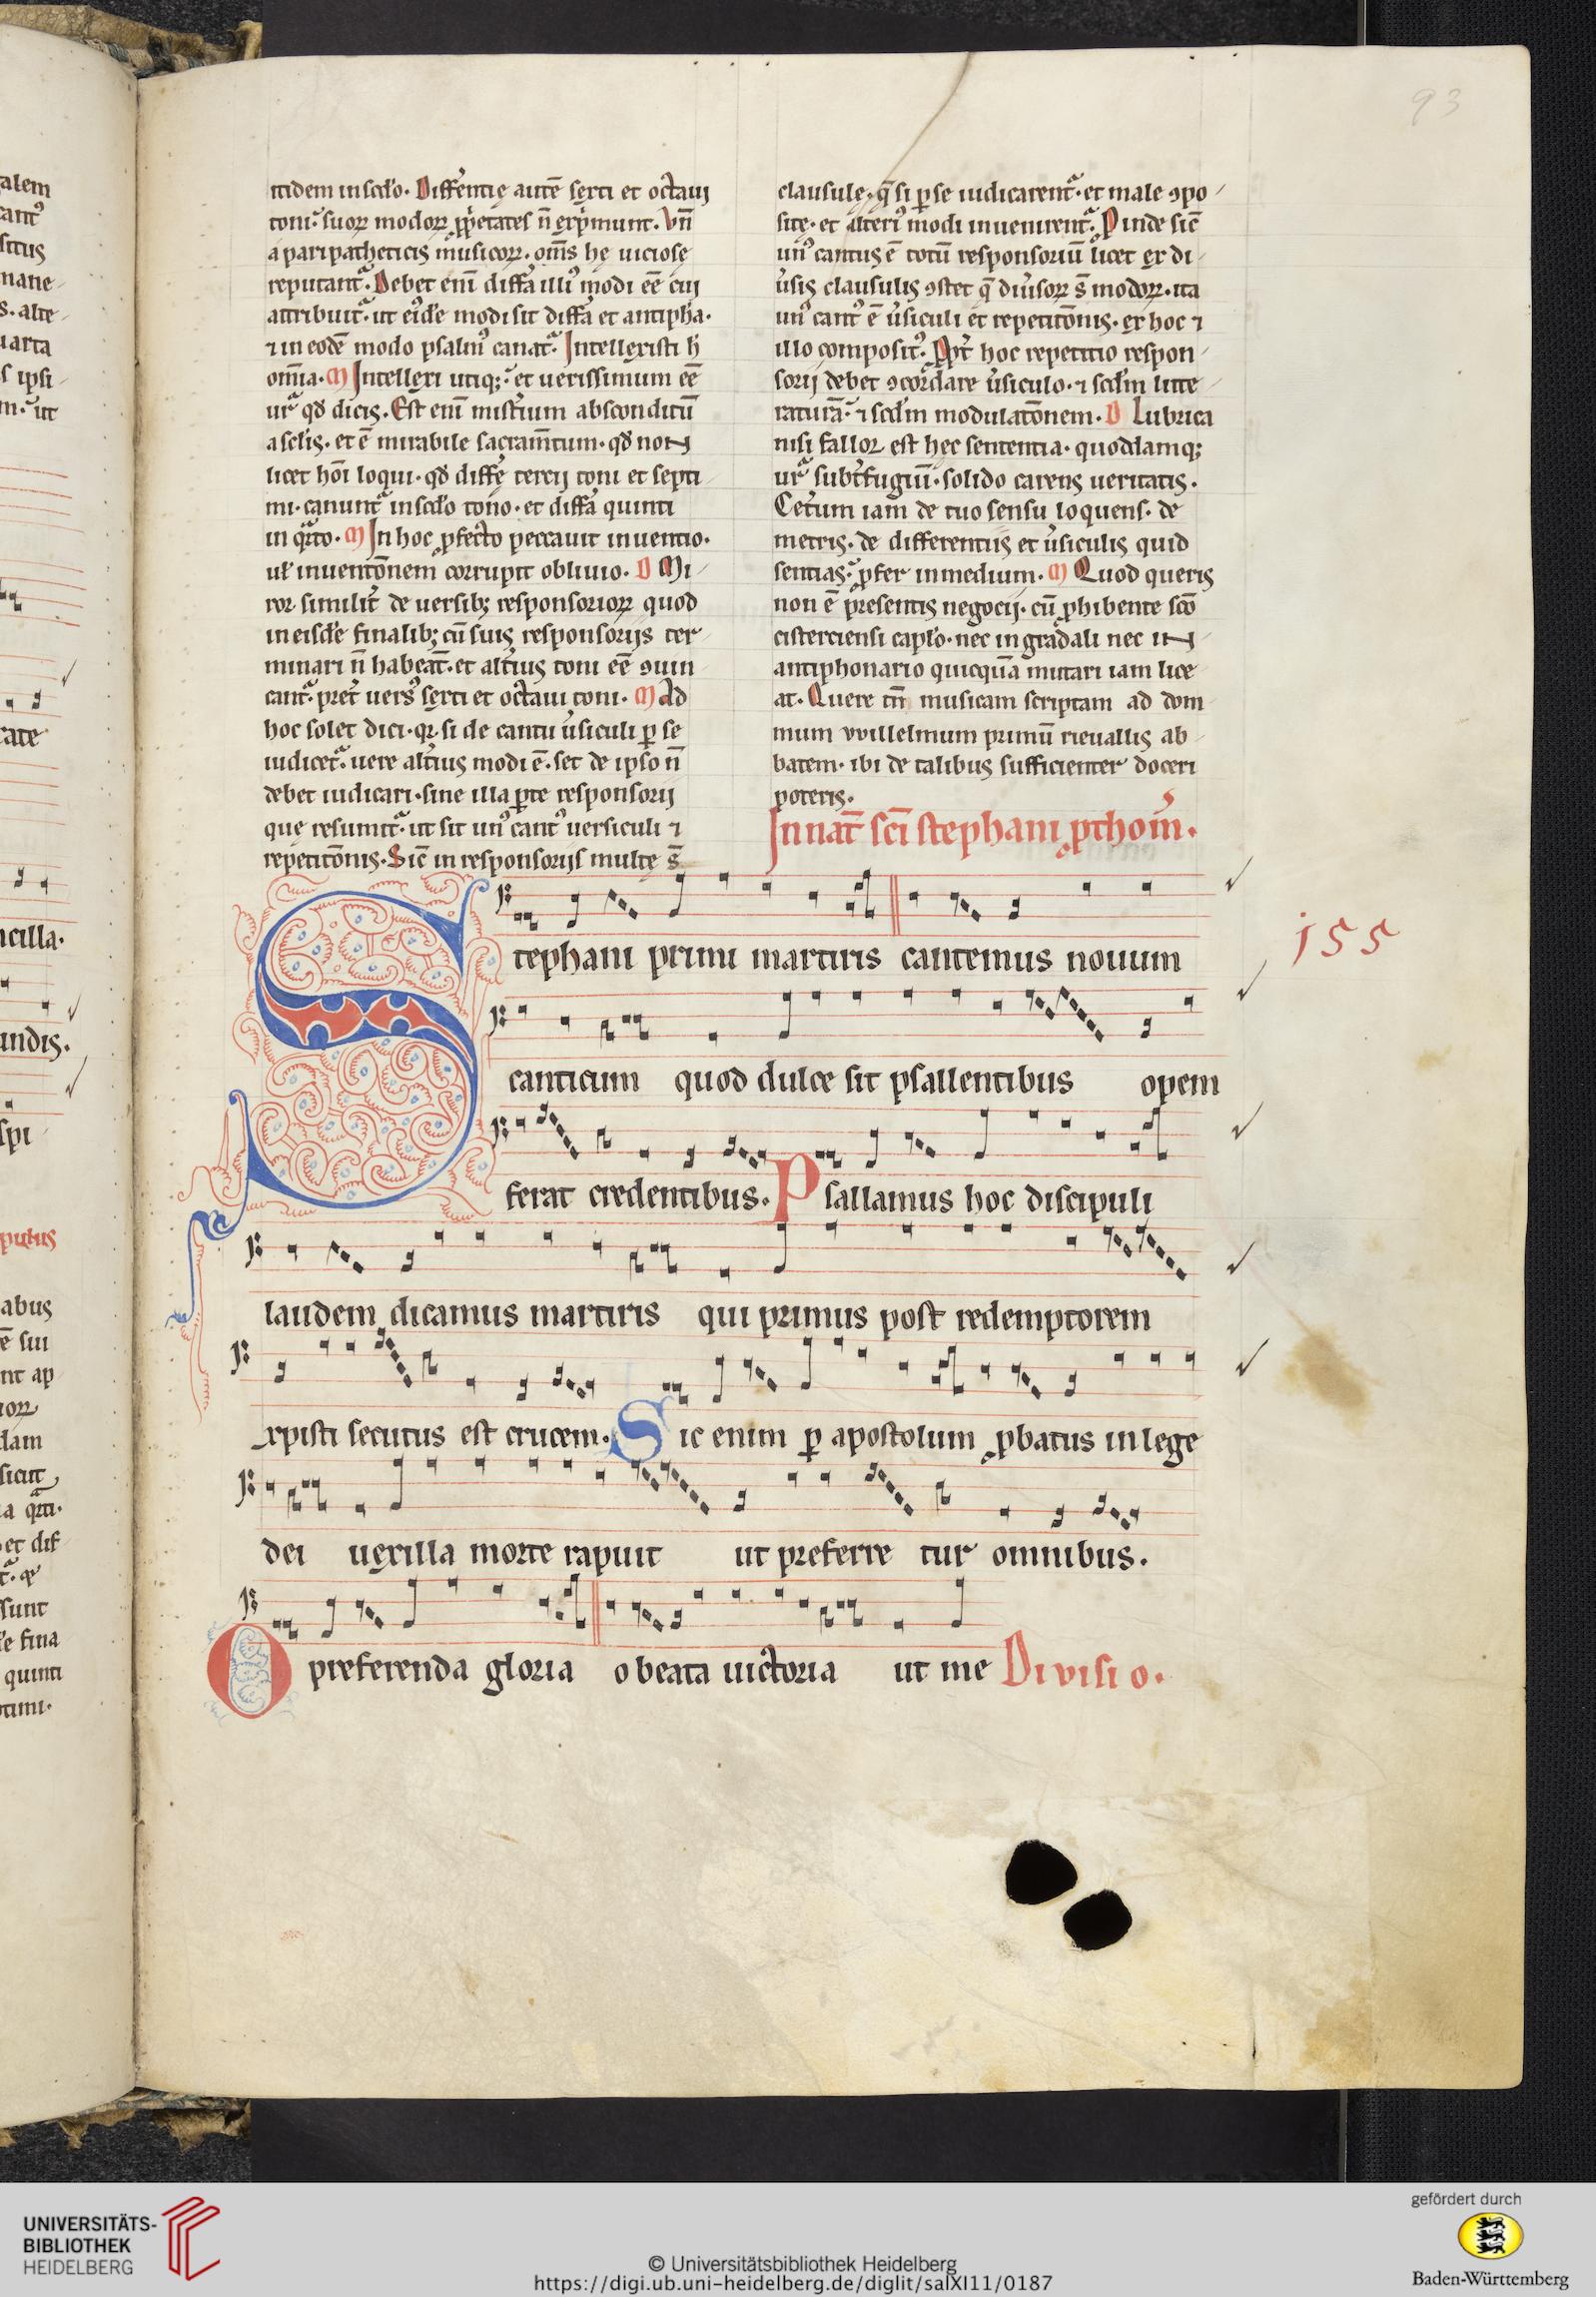 93
itidem in sclo'o. Differentię autē sexti et octaui
toni. suoꝝ modoꝝ ꝓprietates n̄ exp̄munt. Vn̄
a paripatheticis musicoꝝ. om̄s hę uiciose
reputant᷑. Debet enī diffa illi᷒ modi eē cui
attribuit᷑. ut ei᷒dē modi sit diffa et antipha.
⁊ in eodē modo psalm᷒ canat᷑. Intellexisti h̄
omīa. M Intellexi utiqꝫ. et uerissimum eē
ur᷑ qd̄ dicis. Est enī mist̓ium absconditū
a sclis. et ē mirabile sacram̄tum. qd̄ non
licet hōi loqui. qd̄ diffę tercij toni et septi
mi. canunt᷑ in sclo'o tono. et diffa quinti
in qͣrto. M In hoc ꝓfecto peccauit inuentio.
ul̓ inuentōnem corrupit obliuio. D Mi
ror similit̓ de uersibꝫ responsorioꝝ quod
in eisdē finalibꝫ cū suis responsorijs ter
minari n̄ habeāt. et alt̓ius toni eē ꝯuin
cant᷑. pret̓ uers᷒ sexti et octaui toni. M Ad
hoc solet dici. qꝛ si de cantu ūsiculi ꝑ se
iudicet᷑. uere alt̓ius modi ē. set de ipso n̄
debet iudicari. sine illa ꝑte responsorij
que resumit᷑. ut sit un᷒ cant᷒ uersiculi ⁊
repetitōnis. Sic̄ in responsorijs multe s̄
clausule. q̄ si ꝑ se iudicarent᷑. et male ꝯpo
site. et alteri᷒ modi inuenirent᷑. Proinde sic̄
un᷒ cantus ē totū responsoriū licet ex di
ūsis clausulis ꝯstet q̄ diūsoꝝ s̄ modoꝝ. ita
un᷒ cant᷒ ē ūsiculi et repetitōnis. ex hoc ⁊
illo composit᷒. Ppt̓ hoc repetitio respon
sorij debet ꝯcordare ūsiculo. ⁊ scdm litte
raturā. ⁊ scdm modulatōnem. D Lubrica
nisi fallor est hec sententia. quoddamqꝫ
ur᷑ subt̓fugiū. solido carens ueritatis.
Cet̓um iam de tuo sensu loquens. de
metris. de differentiis et ūsiculis quid
sentias. ꝓfer in medium. M Quod queris
non ē presentis negocij. cū ꝓhibente sc̄o
cisterciensi caplo. nec in gradali nec in
antiphonario quicquā mutari iam lice
at. Quere tn̄ musicam scriptam ad dom
mum vvillelmum primū rieuallis ab
batem. ibi de talibus sufficienter doceri
poteris.
In nat̄ sc̄i stephani ꝓthom̄.
Stephani primi martiris cantemus nouum
155
canticum quod dulce sit psallentibus opem
ferat credentibus. Psallamus hoc discipuli
laudem dicamus martiris qui primus post redemptorem
xpisti secutus est crucem. Sic enim ꝑ apostolum ꝓbatus in lege
dei uexilla morte rapuit ut preferre tur omnibus.
O preferenda gloria o beata uictoria ut me Divisio.
UNIVERSITÄTS-
BIBLIOTHEK
HEIDELBERG
© Universitätsbibliothek Heidelberg
https://digi.ub.uni-heidelberg.de/diglit/salXI11/0187
gefördert durch
Baden-Württemberg